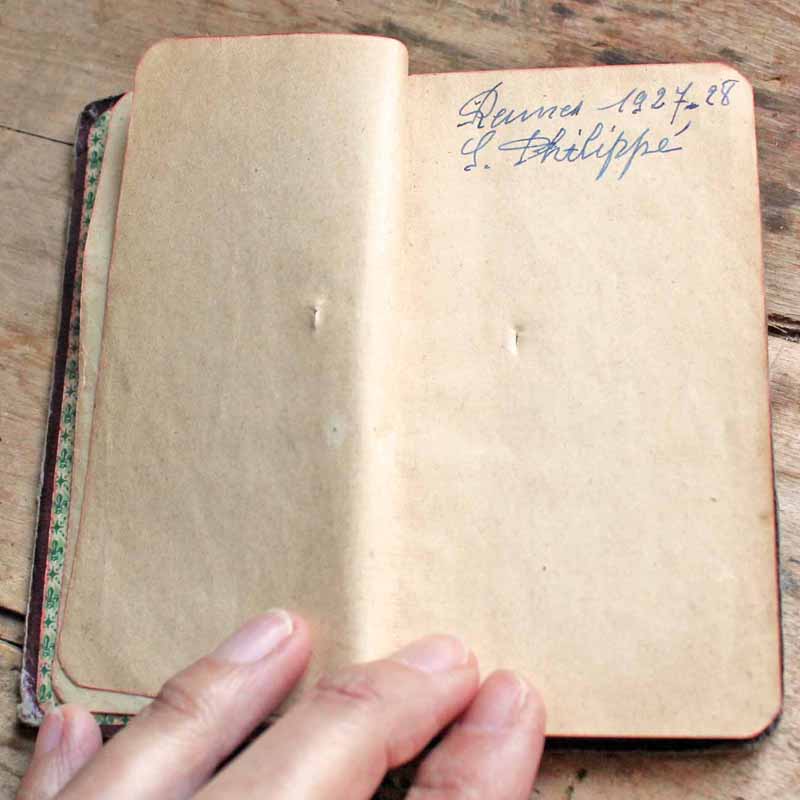 Rennes 1927-28
S. Philippé